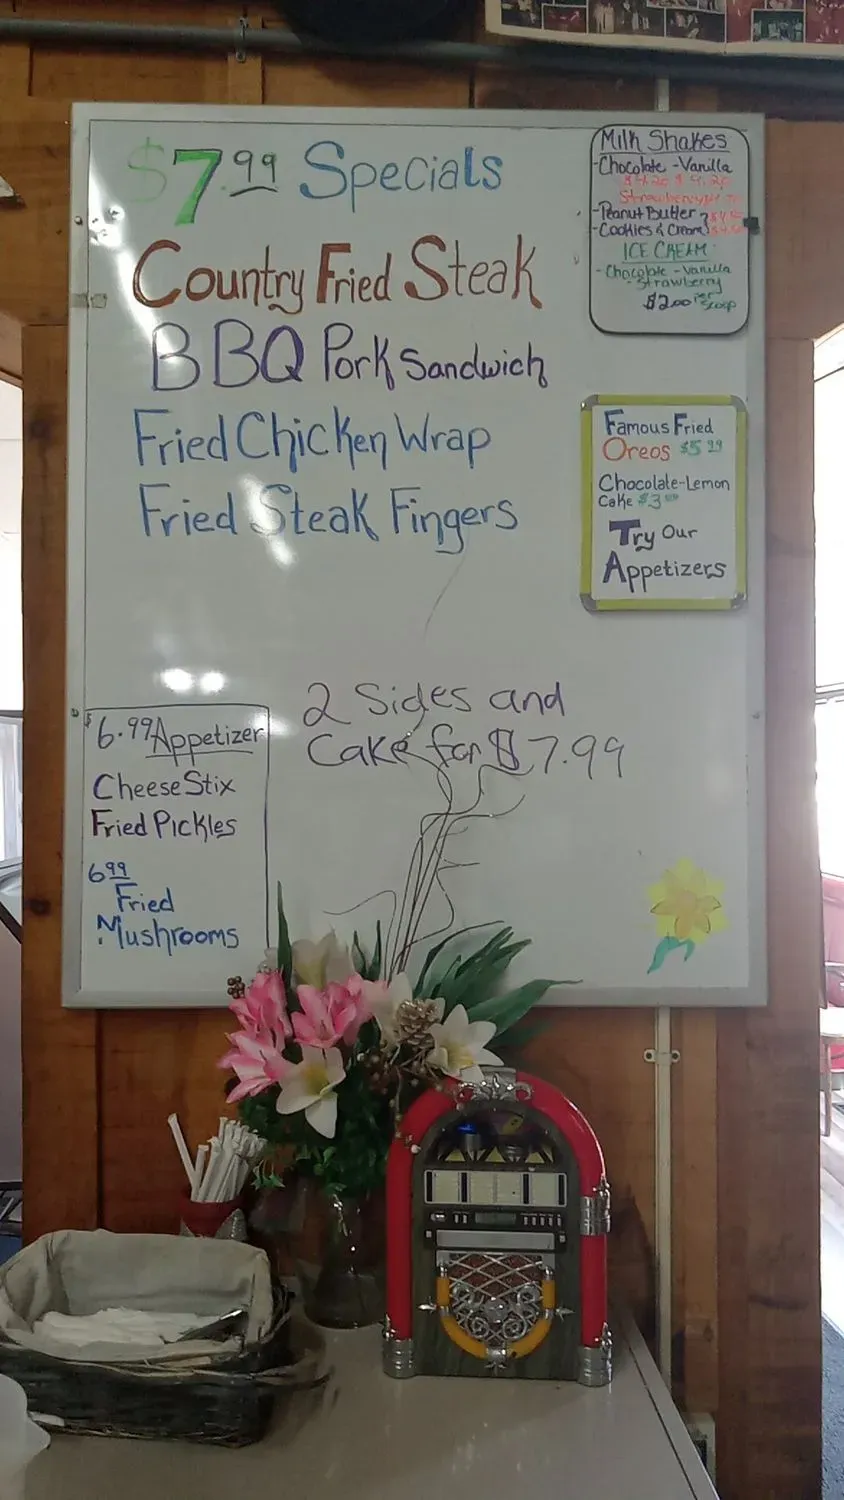 $7.99 Specials
Country Fried Steak
BBQ Pork Sandwich
Fried Chicken Wrap
Fried Steak Fingers
2 Sides and
Cake for $7.99
$6.99 Appetizer
Cheese Stix
Fried Pickles
6.99
Fried
Mushrooms
Milk Shakes
-Chocolate -Vanilla
Strawberry
-Peanut Butter
-Cookies & Cream
ICE CREAM:
-Chocolate -Vanilla
-Strawberry
$2.00 per scoop
Famous Fried
Oreos $5.99
Chocolate-Lemon
Cake $3
Try Our
Appetizers